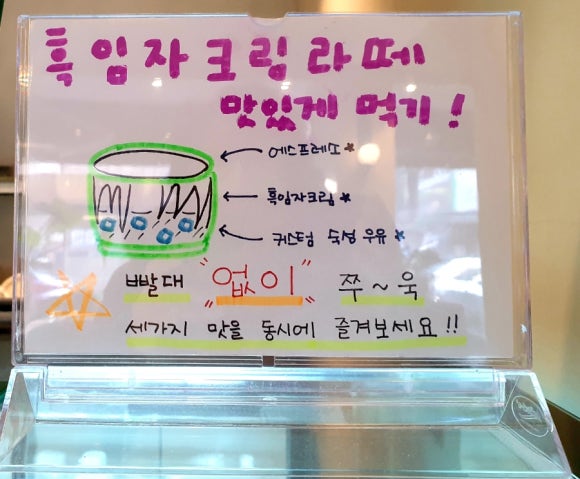 흑임자크림라떼
맛있게 먹기!
에스프레소★
흑임자크림★
커스텀 숙성우유★
빨대 "없이" 쭈~욱
세가지 맛을 동시에 즐겨보세요!!